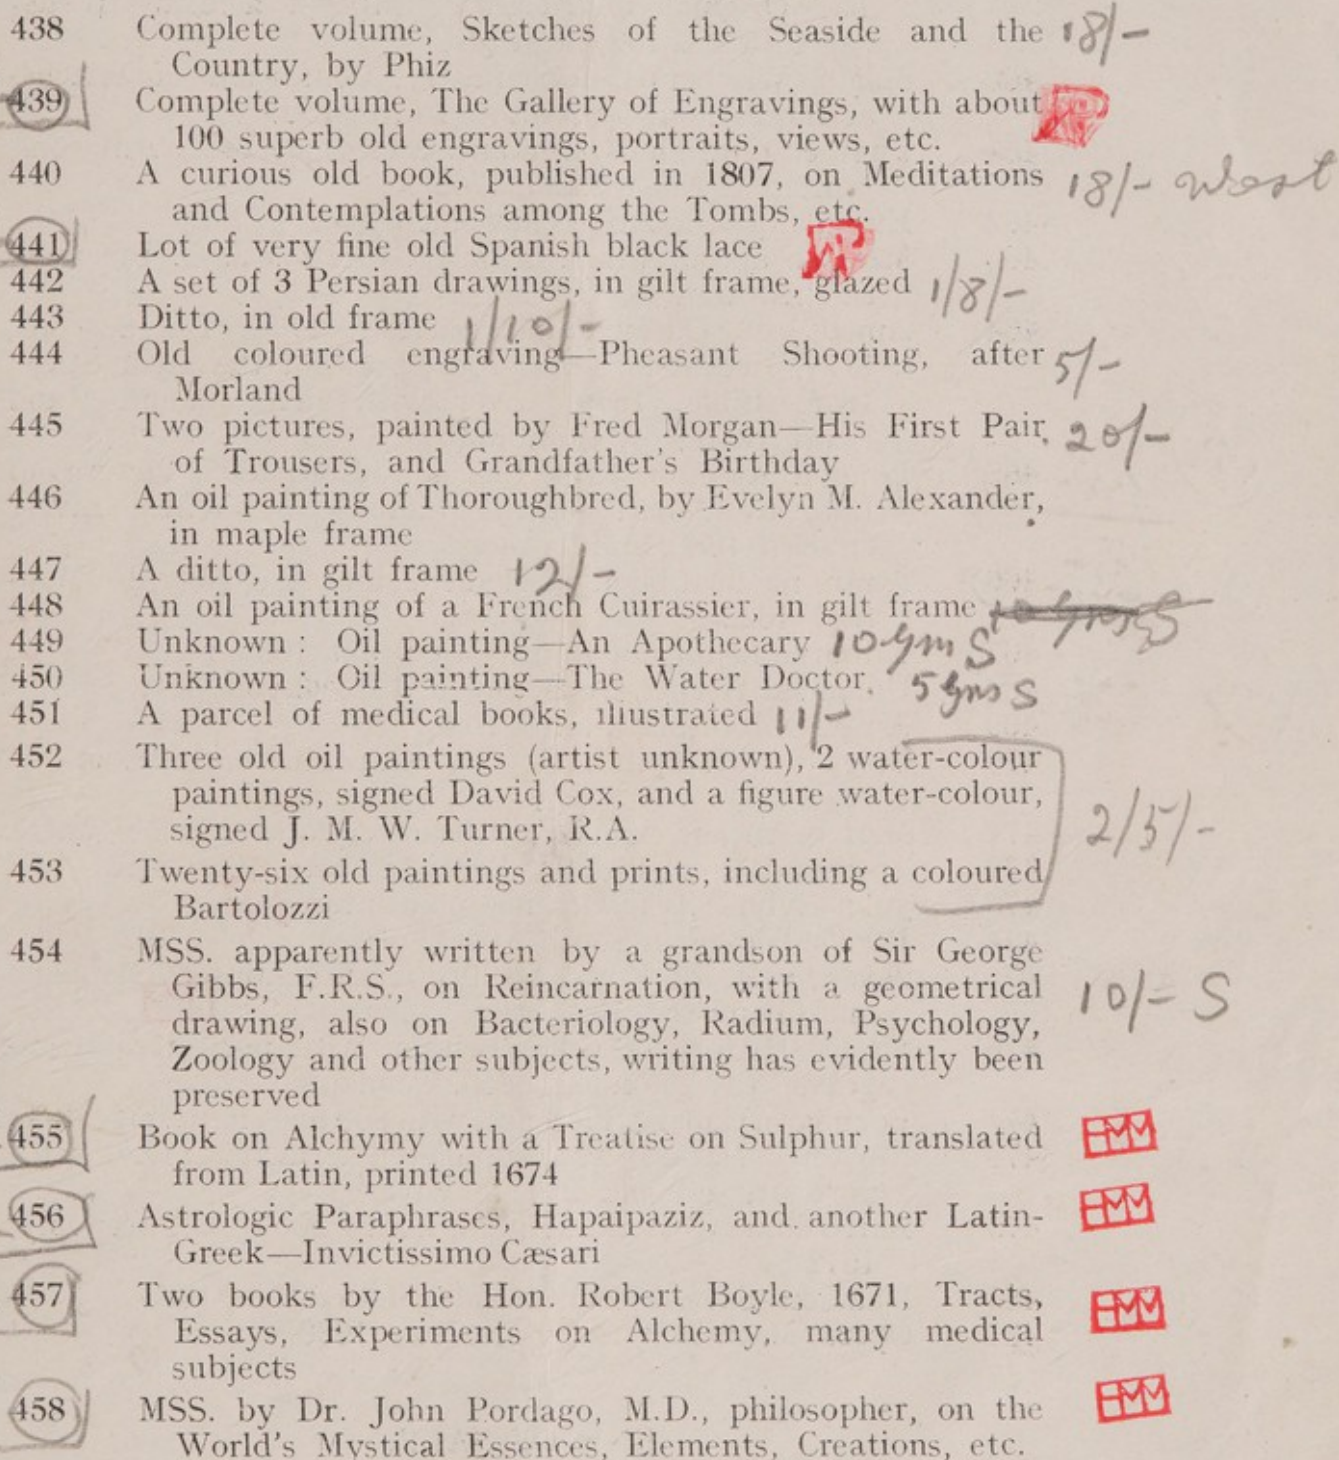 438 Complete volume, Sketches of the Seaside and the 18/-
Country, by Phiz
439 Complete volume, The Gallery of Engravings, with about
100 superb old engravings, portraits, views, etc.
440 A curious old book, published in 1807, on Meditations 18/- West
and Contemplations among the Tombs, etc.
441 Lot of very fine old Spanish black lace
442 A set of 3 Persian drawings, in gilt frame, glazed 1/8/-
443 Ditto, in old frame 1/10/-
444 Old coloured engraving—Pheasant Shooting, after 5/-
Morland
445 Two pictures, painted by Fred Morgan—His First Pair, 20/-
of Trousers, and Grandfather's Birthday
446 An oil painting of Thoroughbred, by Evelyn M. Alexander,
in maple frame
447 A ditto, in gilt frame 12/-
448 An oil painting of a French Cuirassier, in gilt frame 10 gns S
449 Unknown : Oil painting—An Apothecary 10 gns S
450 Unknown : Oil painting—The Water Doctor. 5 gns S
451 A parcel of medical books, illustrated 11/-
452 Three old oil paintings (artist unknown), 2 water-colour
paintings, signed David Cox, and a figure water-colour,
signed J. M. W. Turner, R.A. 2/5/-
453 Twenty-six old paintings and prints, including a coloured
Bartolozzi
454 MSS. apparently written by a grandson of Sir George
Gibbs, F.R.S., on Reincarnation, with a geometrical 10/- S
drawing, also on Bacteriology, Radium, Psychology,
Zoology and other subjects, writing has evidently been
preserved
455 Book on Alchymy with a Treatise on Sulphur, translated
from Latin, printed 1674
456 Astrologic Paraphrases, Hapaipaziz, and another Latin-
Greek—Invictissimo Cæsari
457 Two books by the Hon. Robert Boyle, 1671, Tracts,
Essays, Experiments on Alchemy, many medical
subjects
458 MSS. by Dr. John Pordago, M.D., philosopher, on the
World's Mystical Essences, Elements, Creations, etc.